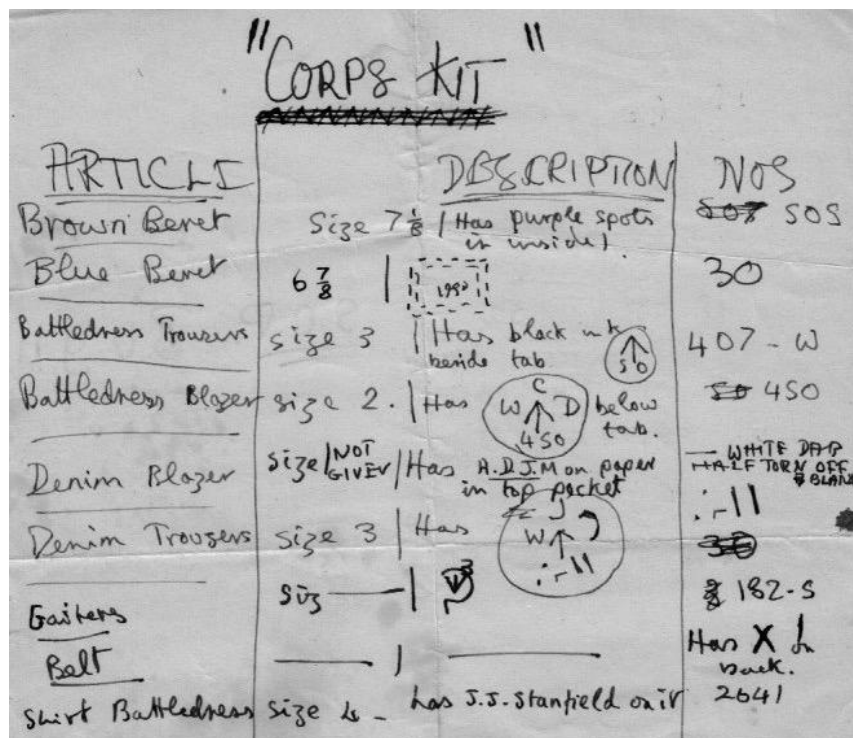 "CORPS KIT"
ARTICLE DESCRIPTION NOS
Brown Beret Size 7 1/8 | Has purple spots SOS
in inside!
Blue Beret 6 7/8 | 1990 30
Battledress Trousers size 3 | Has black ink 407-W
beside tab ↑ 50
Battledress Blazer size 2. | Has C 50 450
W ↑ D below
450 tab.
Denim Blazer size/NOT GIVEN | Has A.D.J.M on paper — WHITE
in top pocket HALF TORN OFF & BLANK
Denim Trousers size 3 | Has W ↑ ∴-11 ∴-11
Gaiters Siz — | 182-S
Belt — | — Has X on
back.
Shirt Battledress size 4 - has J.J. Stanfield on it 2641